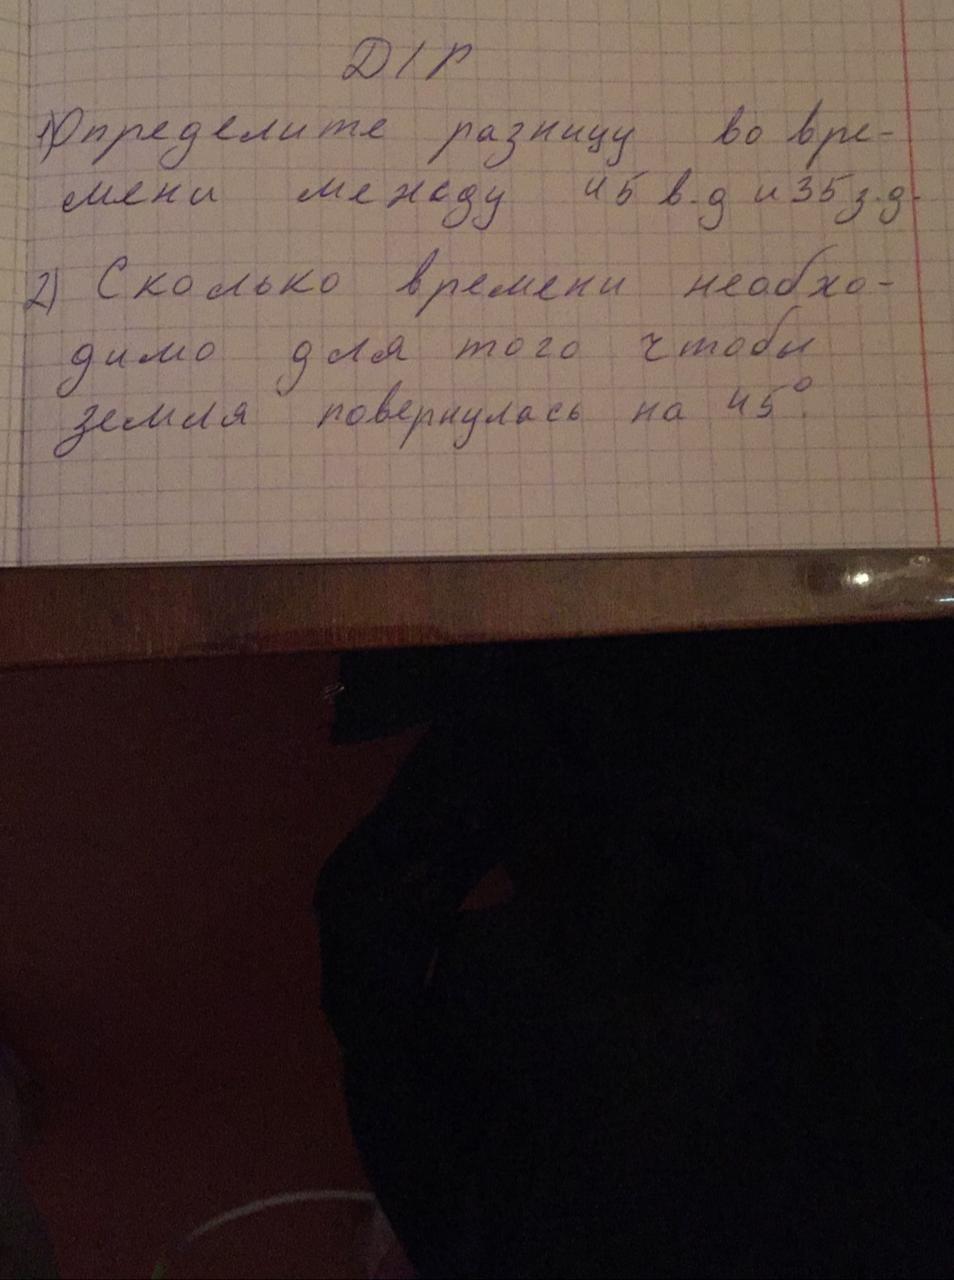 D/Р
1) Определите разницу во вре-
мени между 45 в.д и 35 з.д.
2) Сколько времени необхо-
димо для того чтобы
земля повернулась на 45°.